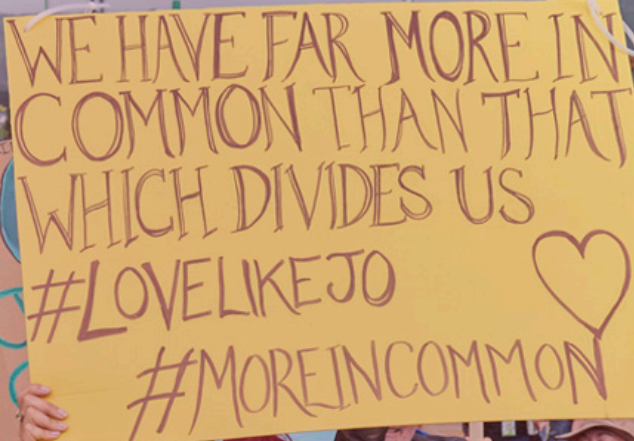 WE HAVE FAR MORE IN
COMMON THAN THAT
WHICH DIVIDES US
#LOVELIKEJO
#MOREINCOMMON